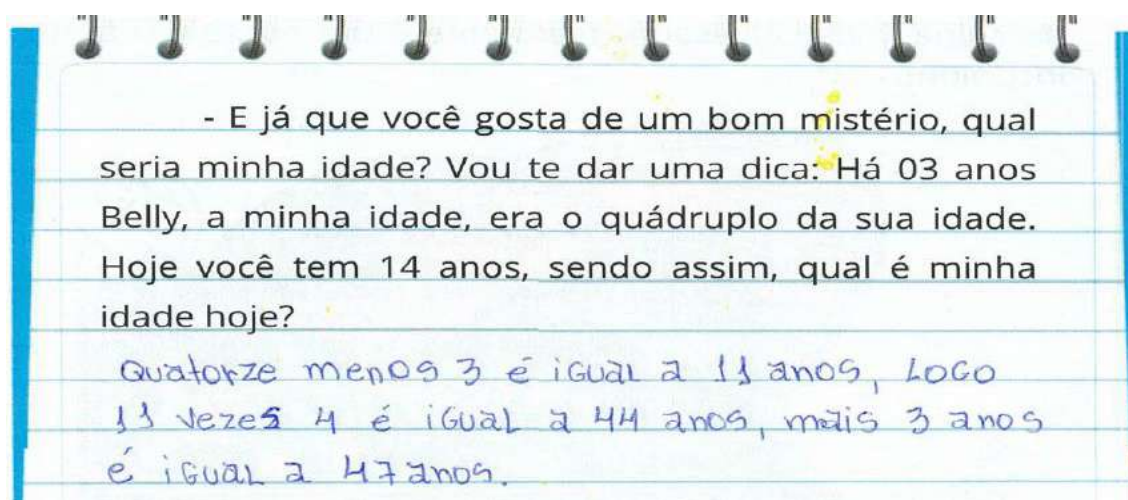 - E já que você gosta de um bom mistério, qual
seria minha idade? Vou te dar uma dica: Há 03 anos
Belly, a minha idade, era o quádruplo da sua idade.
Hoje você tem 14 anos, sendo assim, qual é minha
idade hoje?
Quatorze menos 3 é igual a 11 anos, Logo
11 vezes 4 é igual a 44 anos, mais 3 anos
é igual a 47 anos.